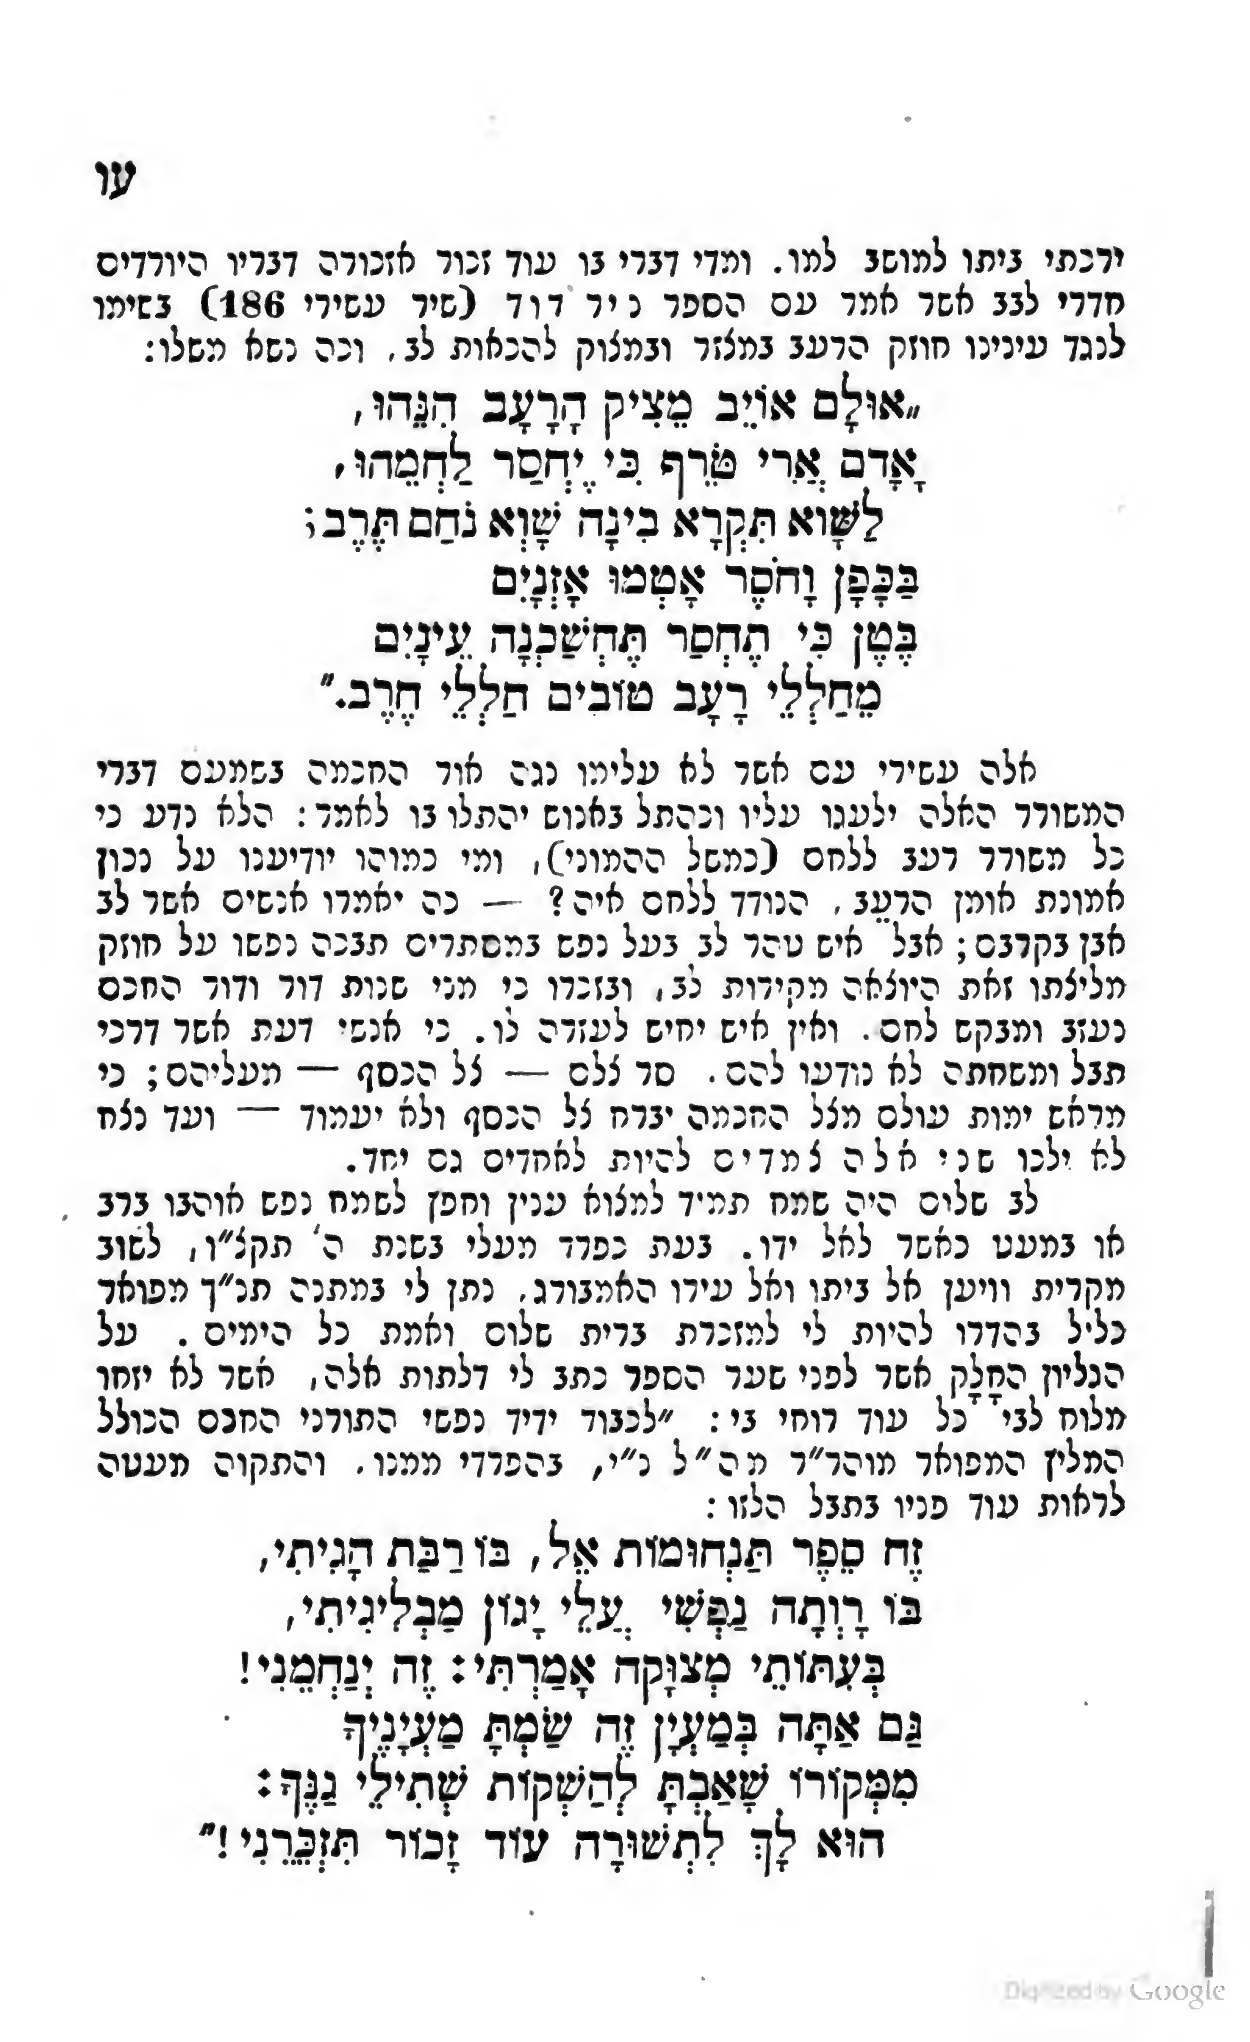 עו
ירכתי ביתו למושב למו. ומדי דברי בו עוד זכור אזכורה דבריו היורדים
חדרי לבב אשר אמר עם הספר ניר דוד (שיר עשירי 186) בשימו
לנגד עינינו חוזק הרעב במאזר ובמצוק להכאות לב, וכה נשא משלו:
„אוּלָם אוֹיֵב מֵצִיק הָרָעָב הִנֵּהוּ,
אָדָם אֲרִי טֹרֵף כִּי יֶחְסַר לַחְמֵהוּ,
לַשָּׁוא תִּקְרָא בִינָה שָׁוְא נֹחַם תֶּרֶב;
בַּכָּפָן וָחֹסֶר אָטְמוּ אָזְנָיִם
בֶּטֶן כִּי תֶחְסַר תֶּחְשַׁכְנָה עֵינָיִם
מֵחַלְלֵי רָעָב טוֹבִים חַלְלֵי חֶרֶב."
אלה עשירי עם אשר לא עלימו נגה אור החכמה בשמעם דברי
המשורר האלה ילעגו עליו וכהתל באנוש יהתלו בו לאמר: הלא נדע כי
כל משורר רעב ללחם (כמשל ההמוני), ומי כמוהו יודיענו על נכון
אמונת אומן הרעב, הנודד ללחם איה? — כה יאמרו אנשים אשר לב
אבן בקרבם; אבל איש טהר לב בעל נפש במסתרים תבכה נפשו על חוזק
מליצתו זאת היוצאה מקירות לב, ובזכרו כי מני שנות דור ודור החכם
נעזב ומבקש לחם. ואין איש יחיש לעזרה לו. כי אנשי דעת אשר דרכי
תבל ומשחתה לא נודעו להם. סר צלם — צל הכסף — מעליהם; כי
מראש ימות עולם מצל החכמה יברח צל הכסף ולא יעמוד — ועד נצח
לא ילכו שני אלה צמדים להיות לאחדים גם יחד.
לב שלום היה שמח תמיד למצוא ענין וחפץ לשמח נפש אוהבו ברב
או במעט כאשר לאל ידו. בעת נפרד מעלי בשנת ה' תקצ"ו, לשוב
מקרית וויען אל ביתו ואל עירו האמבורג, נתן לי במתנה תנ"ך מפואר
כליל בהדרו להיות לי למזכרת ברית שלום ואמת כל הימים. על
הגליון החָלָק אשר לפני שער הספר כתב לי דלתות אלה, אשר לא יזחו
מלוח לבי כל עוד רוחי בי: "לכבוד ידיד נפשי התורני החכם הכולל
המליץ המפואר מוהר"ר מה"ל נ"י, בהפרדי ממנו. והתקוה מעטה
לראות עוד פניו בתבל הלזו:
זֶה סֵפֶר תַּנְחוּמוֹת אֵל, בּוֹ רַבַּת הָגִיתִי,
בּוֹ רָוְתָה נַפְשִׁי עֲלֵי יָגוֹן מַבְלִיגִיתִי,
בְּעִתּוֹתֵי מְצוּקָה אָמַרְתִּי: זֶה יְנַחְמֵנִי!
גַּם אַתָּה בְּמַעְיָן זֶה שַׂמְתָּ מַעְיָנֶיךָ
מִמְּקוֹרוֹ שָׁאַבְתָּ לְהַשְׁקוֹת שְׁתִילֵי גַנֶּךָ:
הוּא לָךְ לִתְשׁוּרָה עוֹד זָכוֹר תִּזְכְּרֵנִי!"
Digitized by Google